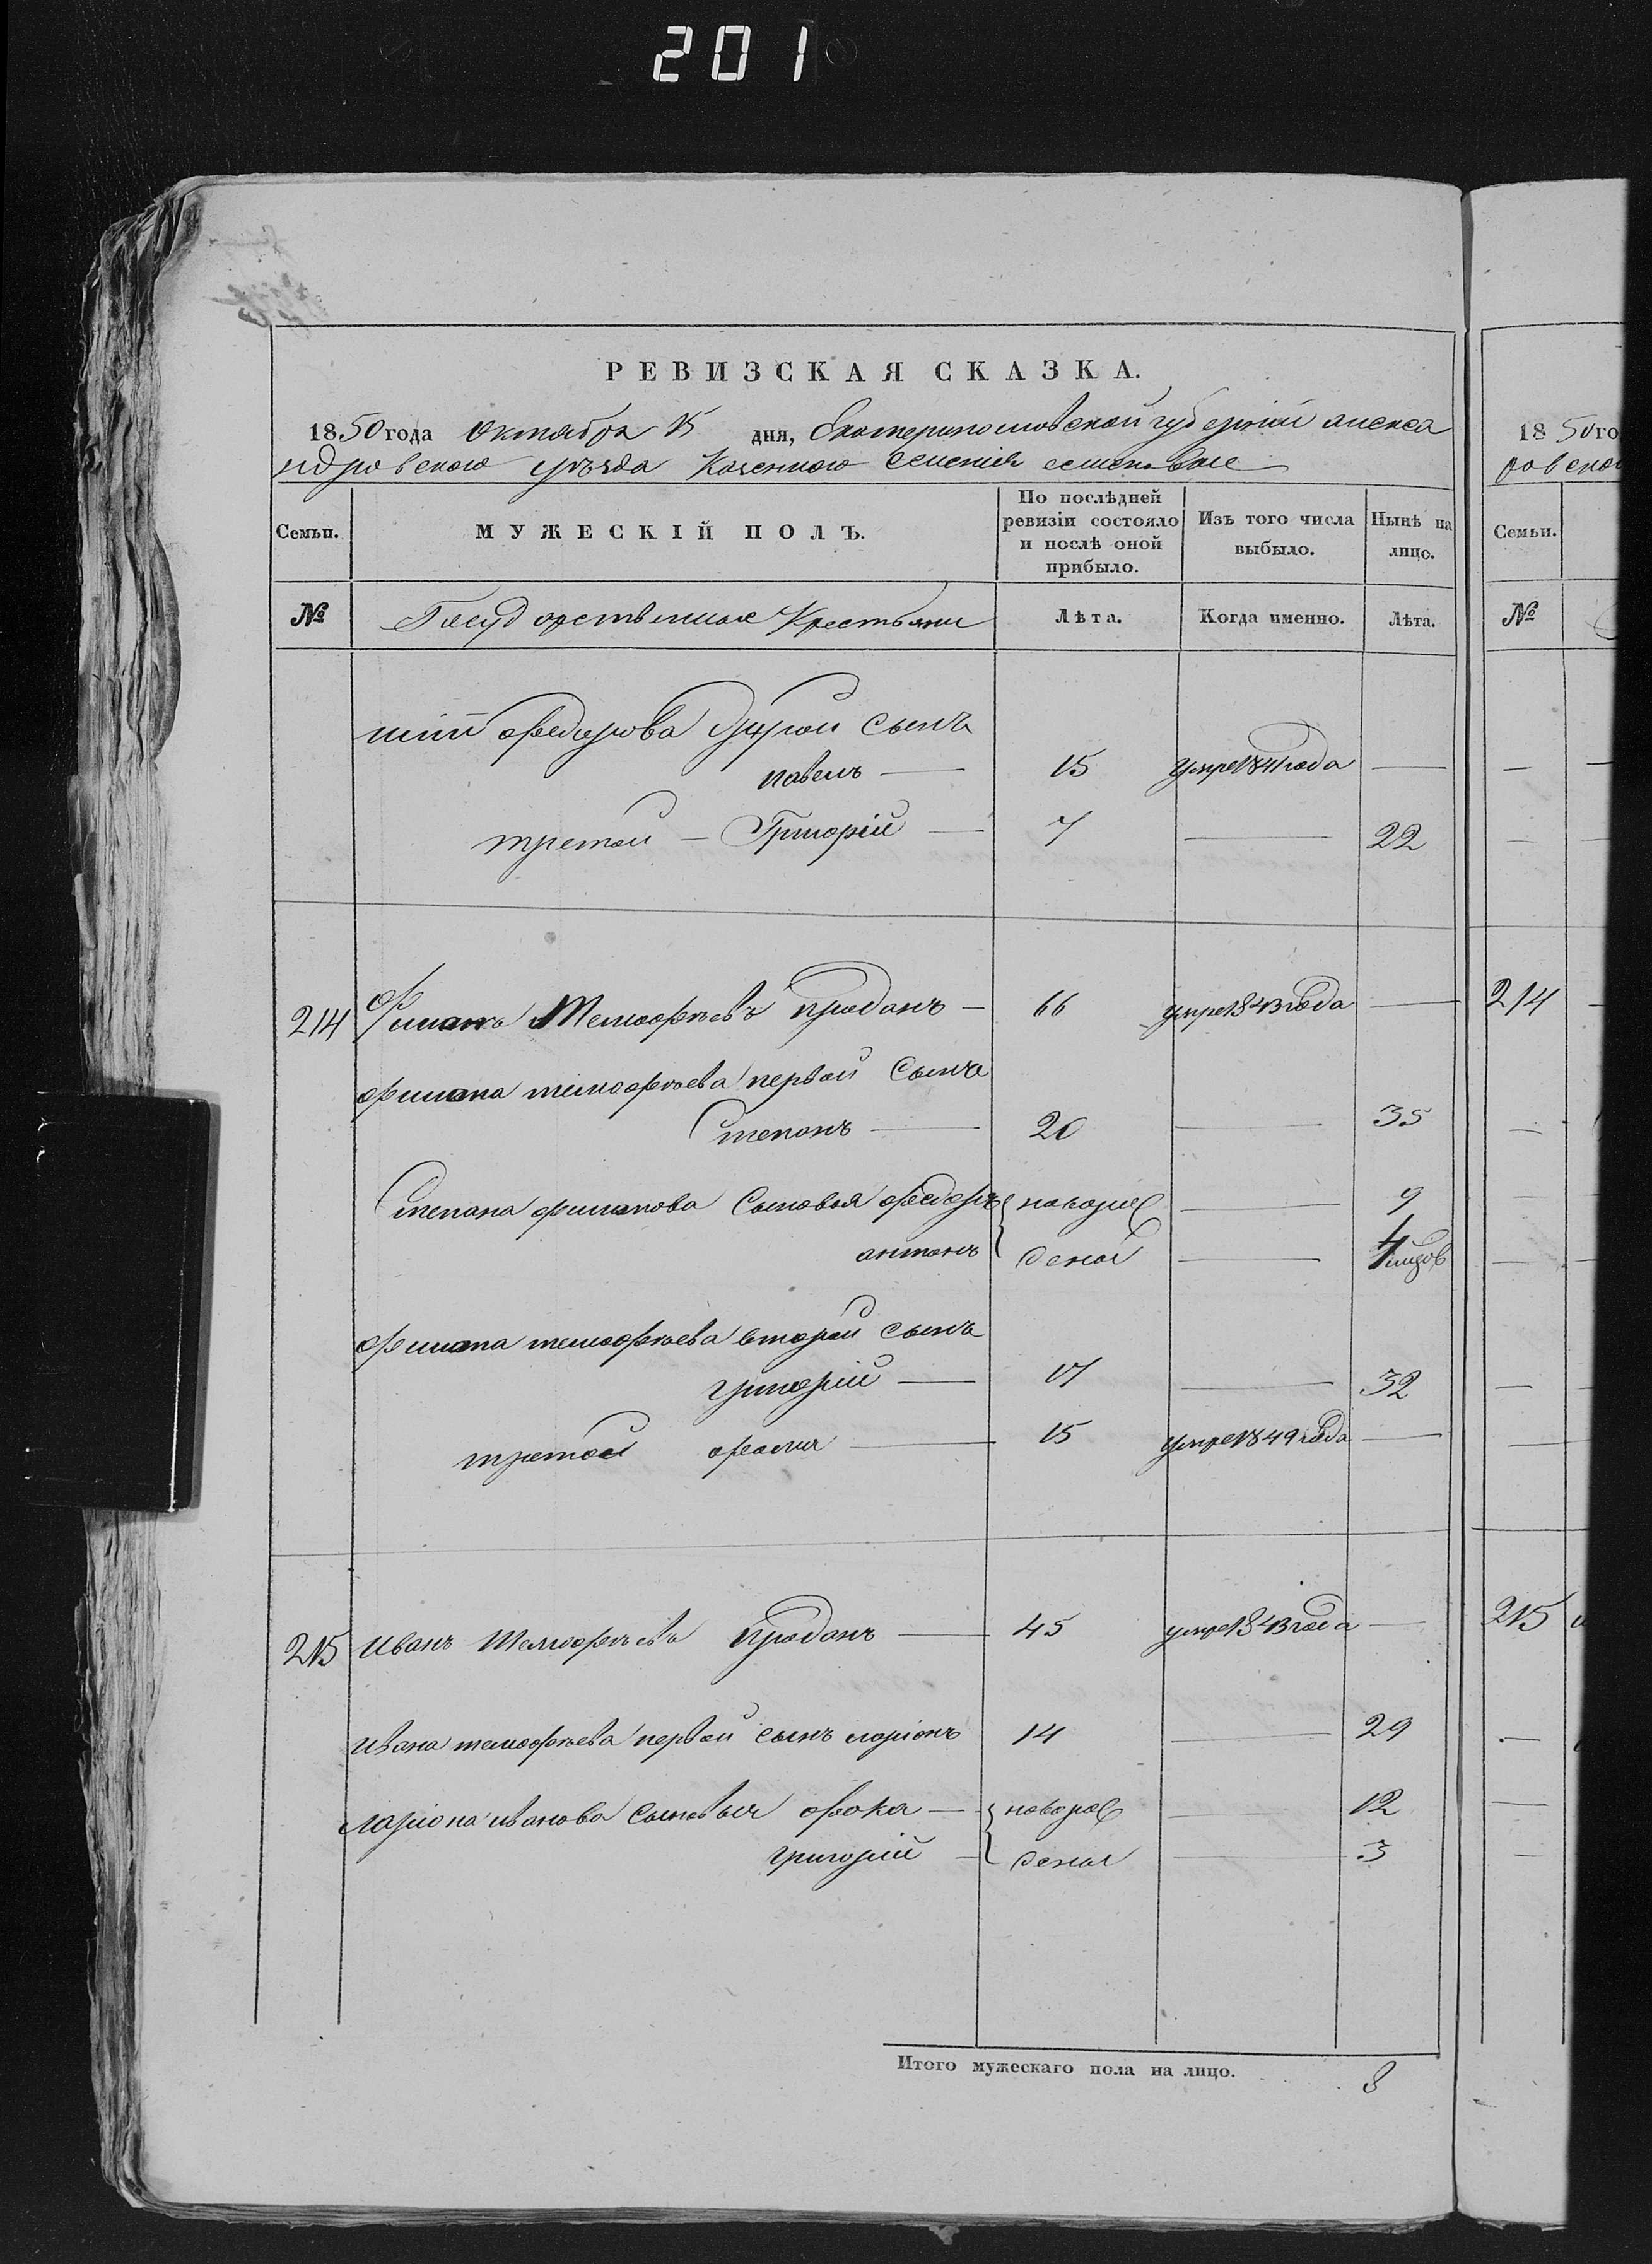 201
РЕВИЗСКАЯ СКАЗКА.
1850 года Октября 15 дня, Екатеринославской губернии алекса
ндровского уъзда Казенного селения
Семьи. МУЖЕСКІЙ ПОЛЪ. По послѣдней ревизіи состояло и послѣ оной прибыло. Изъ того числа выбыло. Нынѣ на лицо.
№ Государственные Крестьяни Лѣта. Когда именно. Лѣта.
федорова другой сынъ
павелъ — 15 умре 1841 года —
третой — Григорій — 7 — 22
214 Филипъ Темофѣевъ Проданъ — 66 умре 1843 года —
филипа темофѣева первой Сынъ
Степанъ — 20 — 35
Степана филипова Сыновья федоръ новорож — 9
антонъ деной — 4
филипа темофѣева второй сынъ
григорій — 17 — 32
третой фома — 15 умре 1849 года —
215 иванъ Темофѣевъ Проданъ — 45 умре 1843 года —
ивана темофѣева первой сынъ ларіонъ 14 — 29
ларіона иванова сыновья фока — новорож — 12
григорій — деные — 3
Итого мужескаго пола на лицо. 8
18 50 го
Семьи.
№
214
215